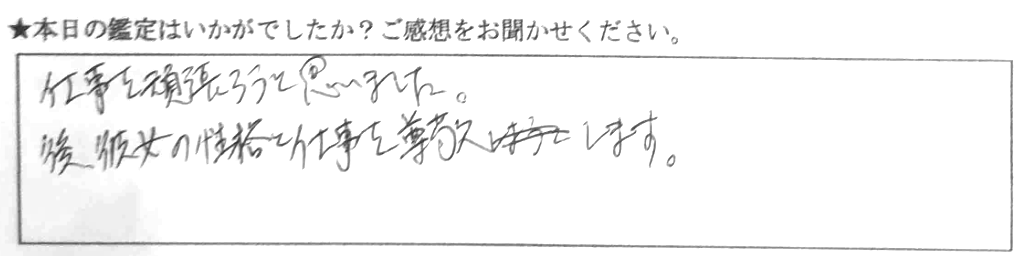 ★本日の鑑定はいかがでしたか？ご感想をお聞かせください。
仕事を頑張ろうと思いました。
後、彼女の性格と仕事を尊敬します。